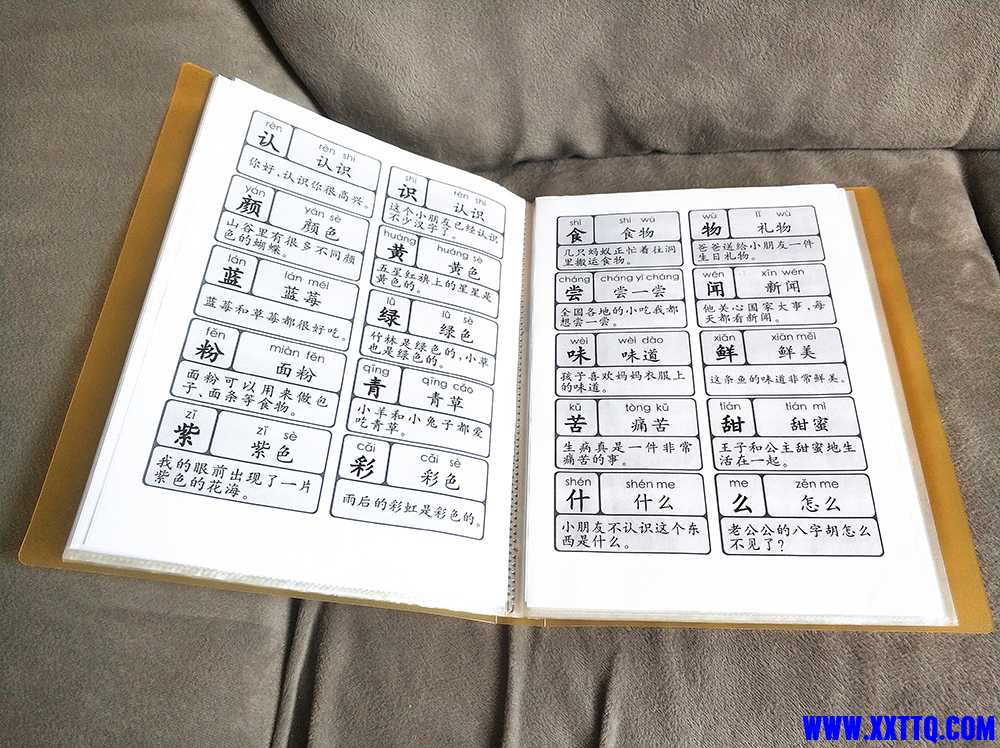 rèn
认
rèn shi
认识
你好,认识你很高兴。
shí
识
rèn shi
认识
这个小朋友已经认识
不少汉字了。
yán
颜
yán sè
颜色
山谷里有很多不同颜
色的蝴蝶。
huáng
黄
huáng sè
黄色
五星红旗上的星星是
黄色的。
lán
蓝
lán méi
蓝莓
蓝莓和草莓都很好吃。
lǜ
绿
lǜ sè
绿色
竹林是绿色的,小草
也是绿色的。
fěn
粉
miàn fěn
面粉
面粉可以用来做包
子、面条等食物。
qīng
青
qīng cǎo
青草
小羊和小兔子都爱
吃青草。
zǐ
紫
zǐ sè
紫色
我的眼前出现了一片
紫色的花海。
cǎi
彩
cǎi sè
彩色
雨后的彩虹是彩色的。
shí
食
shí wù
食物
几只蚂蚁正忙着往洞
里搬运食物。
wù
物
lǐ wù
礼物
爸爸送给小朋友一件
生日礼物。
cháng
尝
cháng yi cháng
尝一尝
全国各地的小吃我都
想尝一尝。
wén
闻
xīn wén
新闻
他关心国家大事,每
天都看新闻。
wèi
味
wèi dào
味道
孩子喜欢妈妈衣服上
的味道。
xiān
鲜
xiān měi
鲜美
这条鱼的味道非常鲜美。
kǔ
苦
tòng kǔ
痛苦
生病真是一件非常
痛苦的事。
tián
甜
tián mì
甜蜜
王子和公主甜蜜地生
活在一起。
shén
什
shén me
什么
小朋友不认识这个东
西是什么。
me
么
zěn me
怎么
老公公的八字胡怎么
不见了?
WWW.XXTTQ.COM